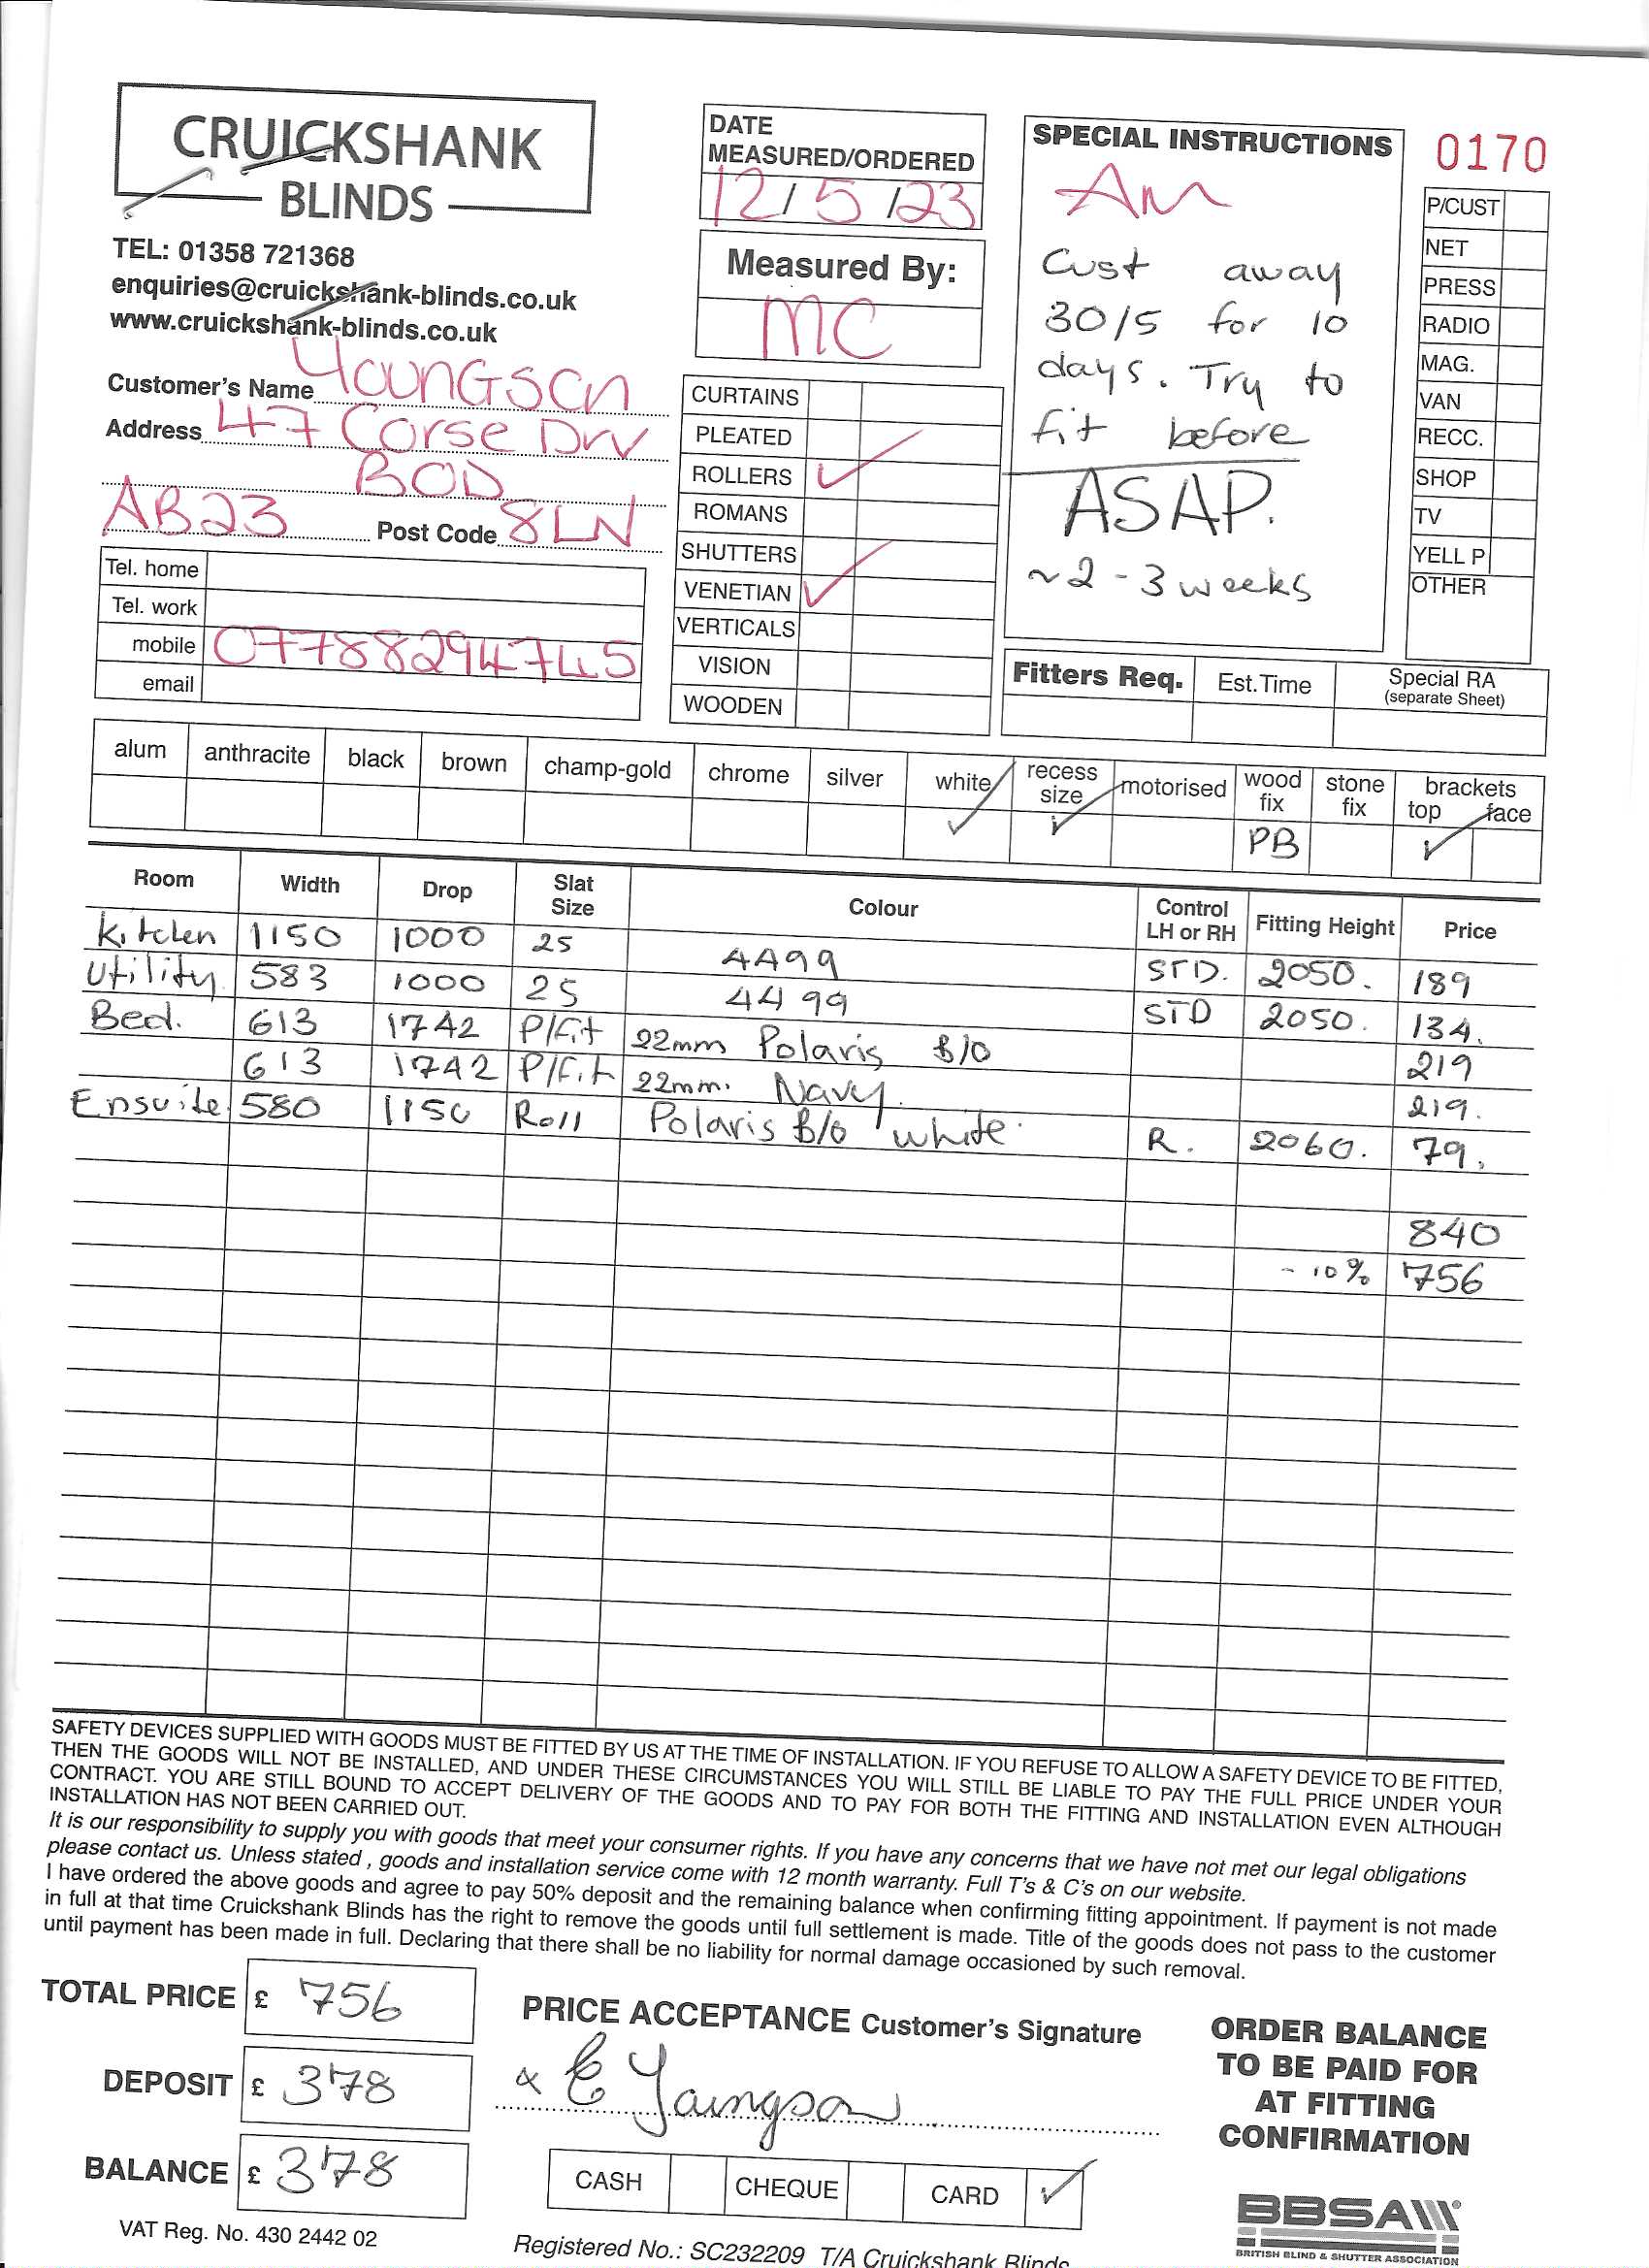 CRUICKSHANK
BLINDS
TEL: 01358 721368
enquiries@cruickshank-blinds.co.uk
www.cruickshank-blinds.co.uk
Customer's Name Youngson
Address 47 Corse Drv
BOD
AB23 Post Code 8LN
Tel. home
Tel. work
mobile 07788294745
email
DATE
MEASURED/ORDERED
12/5/23
Measured By:
MC
CURTAINS
PLEATED
ROLLERS ✓
ROMANS
SHUTTERS
VENETIAN ✓
VERTICALS
VISION
WOODEN
SPECIAL INSTRUCTIONS
AM
Cust away
30/5 for 10
days. Try to
fit before
ASAP.
~2-3 weeks
0170
P/CUST
NET
PRESS
RADIO
MAG.
VAN
RECC.
SHOP
TV
YELL P
OTHER
Fitters Req. Est.Time Special RA
(separate Sheet)
alum anthracite black brown champ-gold chrome silver white recess size motorised wood fix stone fix brackets top face
✓ ✓ PB ✓
Room Width Drop Slat Size Colour Control LH or RH Fitting Height Price
Kitchen 1150 1000 25 4499 STD. 2050. 189
Utility 583 1000 25 4499 STD 2050. 134.
Bed. 613 1742 P/Fit 22mm Polaris B/O 219
613 1742 P/Fit 22mm. Navy. 219.
Ensuite 580 1150 Roll Polaris B/O white R. 2060. 79.
840
- 10% 756
SAFETY DEVICES SUPPLIED WITH GOODS MUST BE FITTED BY US AT THE TIME OF INSTALLATION. IF YOU REFUSE TO ALLOW A SAFETY DEVICE TO BE FITTED,
THEN THE GOODS WILL NOT BE INSTALLED, AND UNDER THESE CIRCUMSTANCES YOU WILL STILL BE LIABLE TO PAY THE FULL PRICE UNDER YOUR
CONTRACT. YOU ARE STILL BOUND TO ACCEPT DELIVERY OF THE GOODS AND TO PAY FOR BOTH THE FITTING AND INSTALLATION EVEN ALTHOUGH
INSTALLATION HAS NOT BEEN CARRIED OUT.
It is our responsibility to supply you with goods that meet your consumer rights. If you have any concerns that we have not met our legal obligations
please contact us. Unless stated , goods and installation service come with 12 month warranty. Full T's & C's on our website.
I have ordered the above goods and agree to pay 50% deposit and the remaining balance when confirming fitting appointment. If payment is not made
in full at that time Cruickshank Blinds has the right to remove the goods until full settlement is made. Title of the goods does not pass to the customer
until payment has been made in full. Declaring that there shall be no liability for normal damage occasioned by such removal.
TOTAL PRICE £ 756
DEPOSIT £ 378
BALANCE £ 378
VAT Reg. No. 430 2442 02
PRICE ACCEPTANCE Customer's Signature
x E Youngson
CASH CHEQUE CARD ✓
Registered No.: SC232209 T/A Cruickshank Blinds
ORDER BALANCE
TO BE PAID FOR
AT FITTING
CONFIRMATION
BBSA
BRITISH BLIND & SHUTTER ASSOCIATION